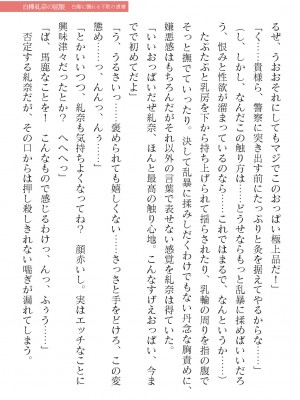 白襷糺奈の屈服
「うおっ！　それにしてもマジでこのおっぱい極上品だ！」
「く、貴様ら、警察に突き出す前にたっぷり灸を据えてやるからな……」
（し、しかし、なんだこの触り方は……どうせならもっと乱暴に揉めばいいだろ
う、恨みと性欲が溜まっているのなら……これではまるで、なんというか……）
　たぷたぷと乳房を下から持ち上げられて揺らされたり、乳輪の周りを指の腹で
そっと撫でていったり。決して乱暴に揉みしだくわけでもない丹念な胸責めに、
嫌悪感はもちろんだがそれ以外の言葉で表せない感覚を糺奈は得ていた。
「いいおっぱいだぜ糺奈、ほんと最高の触り心地。こんなすげえおっぱい、今ま
でで初めてだよ」
「う、うるさいっ……褒められても嬉しくない……さっさと手をどけろ、この変
態め……っ、んんっ、んぅ……」
「とかいいつつ、糺奈も気持ちよくなってね？　顔赤いし。実はエッチなことに
興味津々だったとか？　へへへっ」
「ば、馬鹿なことを！　こんなもので感じるわけっ、んっ、ふぅう……」
　否定する糺奈だが、その口からは押し殺しきれない喘ぎが漏れてしまう。